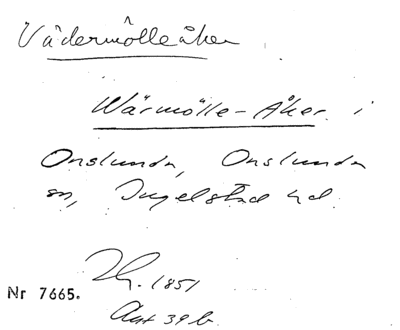 Vädermölleåker
Wärmölle-Åker i
Onslunda, Onslunda
sn, Ingelstad hd.
1851
Nr 7665.
Akt 39 b.